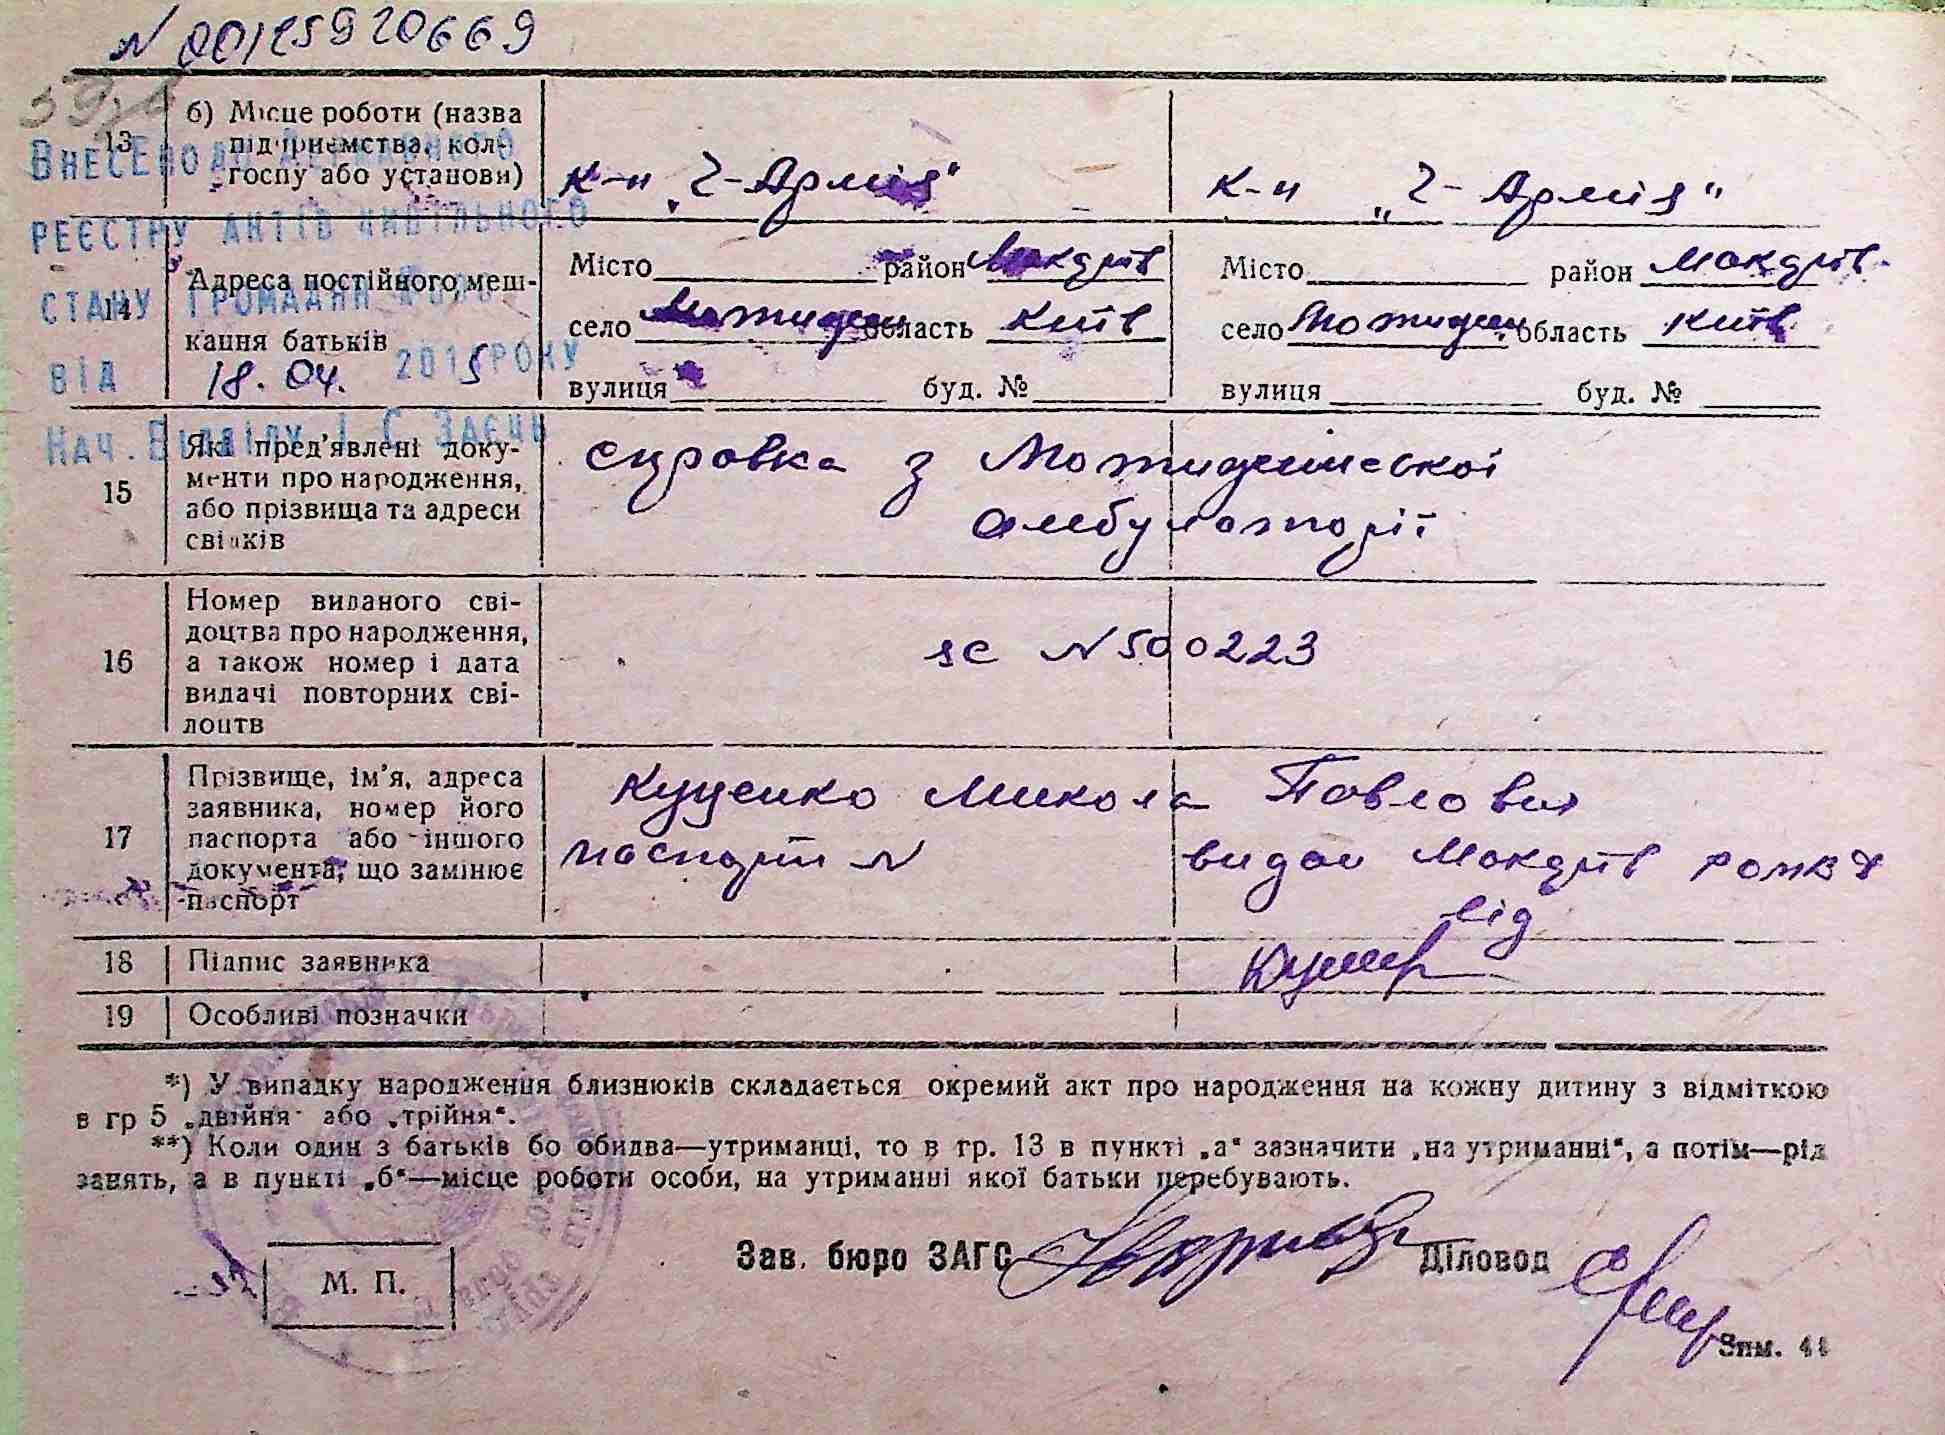 N 00125920669
13
б) Місце роботи (назва
підприємства, кол-
госпу або установи)
к-п „Ч-Армія"
к-п „Ч-Армія"
Внесено до Державного
реєстру актів цивільного
стану громадян
від 18.04. 2015 року
Нач. Відділу І С Заєць
14
Адреса постійного меш-
кання батьків
Місто район Макарів
село Мотижин область Київ
вулиця буд. №
Місто район Макарів
село Мотижин область Київ
вулиця буд. №
15
Які пред'явлені доку-
менти про народження,
або прізвища та адреси
свідків
справка з Мотиженської
амбулаторії
16
Номер виданого сві-
доцтва про народження,
а також номер і дата
видачі повторних сві-
доцтв
N 500223
17
Прізвище, ім'я, адреса
заявника, номер його
паспорта або іншого
документа, що замінює
паспорт
Куценко Микола Павлович
паспорт N видан Макарів
від
18
Підпис заявника
19
Особливі позначки
*) У випадку народження близнюків складається окремий акт про народження на кожну дитину з відміткою
в гр 5 „двійня" або „трійня".
**) Коли один з батьків бо обидва—утриманці, то в гр. 13 в пункті „а" зазначити „на утриманні", а потім—рід
занять, а в пункті „б"—місце роботи особи, на утриманні якої батьки перебувають.
Зав. бюро ЗАГС
Діловод
М. П.
Зам. 44